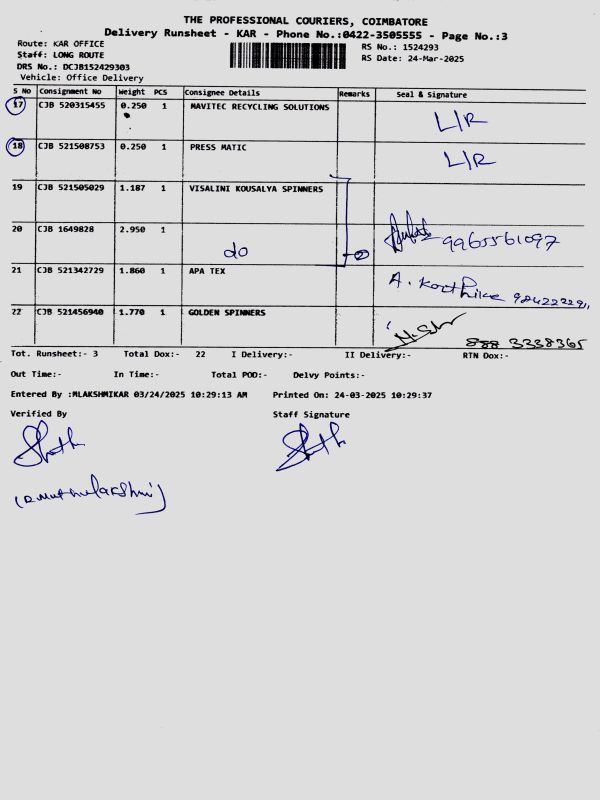 THE PROFESSIONAL COURIERS, COIMBATORE
Delivery Runsheet - KAR - Phone No.:0422-3505555 - Page No.:3
Route: KAR OFFICE
Staff: LONG ROUTE
DRS No.: DCJB152429303
Vehicle: Office Delivery
RS No.: 1524293
RS Date: 24-Mar-2025
S No Consignment No Weight PCS Consignee Details Remarks Seal & Signature
17 CJB 520315455 0.250 1 MAVITEC RECYCLING SOLUTIONS L/R
18 CJB 521508753 0.250 1 PRESS MATIC L/R
19 CJB 521505029 1.187 1 VISALINI KOUSALYA SPINNERS
20 CJB 1649828 2.950 1 do 2 9965561097
21 CJB 521342729 1.860 1 APA TEX A. Karthika
22 CJB 521456940 1.770 1 GOLDEN SPINNERS 3338365
Tot. Runsheet:- 3 Total Dox:- 22 I Delivery:- II Delivery:- RTN Dox:-
Out Time:- In Time:- Total POD:- Delvy Points:-
Entered By :MLAKSHMIKAR 03/24/2025 10:29:13 AM Printed On: 24-03-2025 10:29:37
Verified By Staff Signature